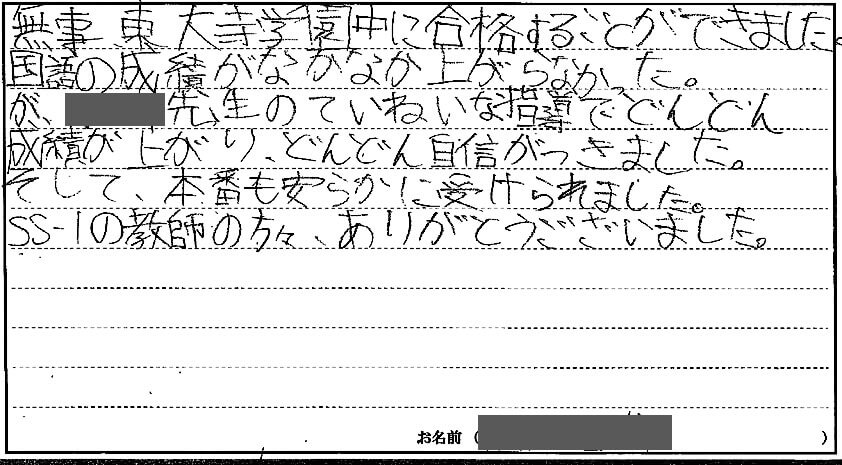 無事東大寺学園中に合格することができました。
国語の成績がなかなか上がらなかった。
が、先生のていねいな指導でどんどん
成績が上がり、どんどん自信がつきました。
そして、本番も安らかに受けられました。
SS-1の教師の方々、ありがとうございました。
お名前（ ）